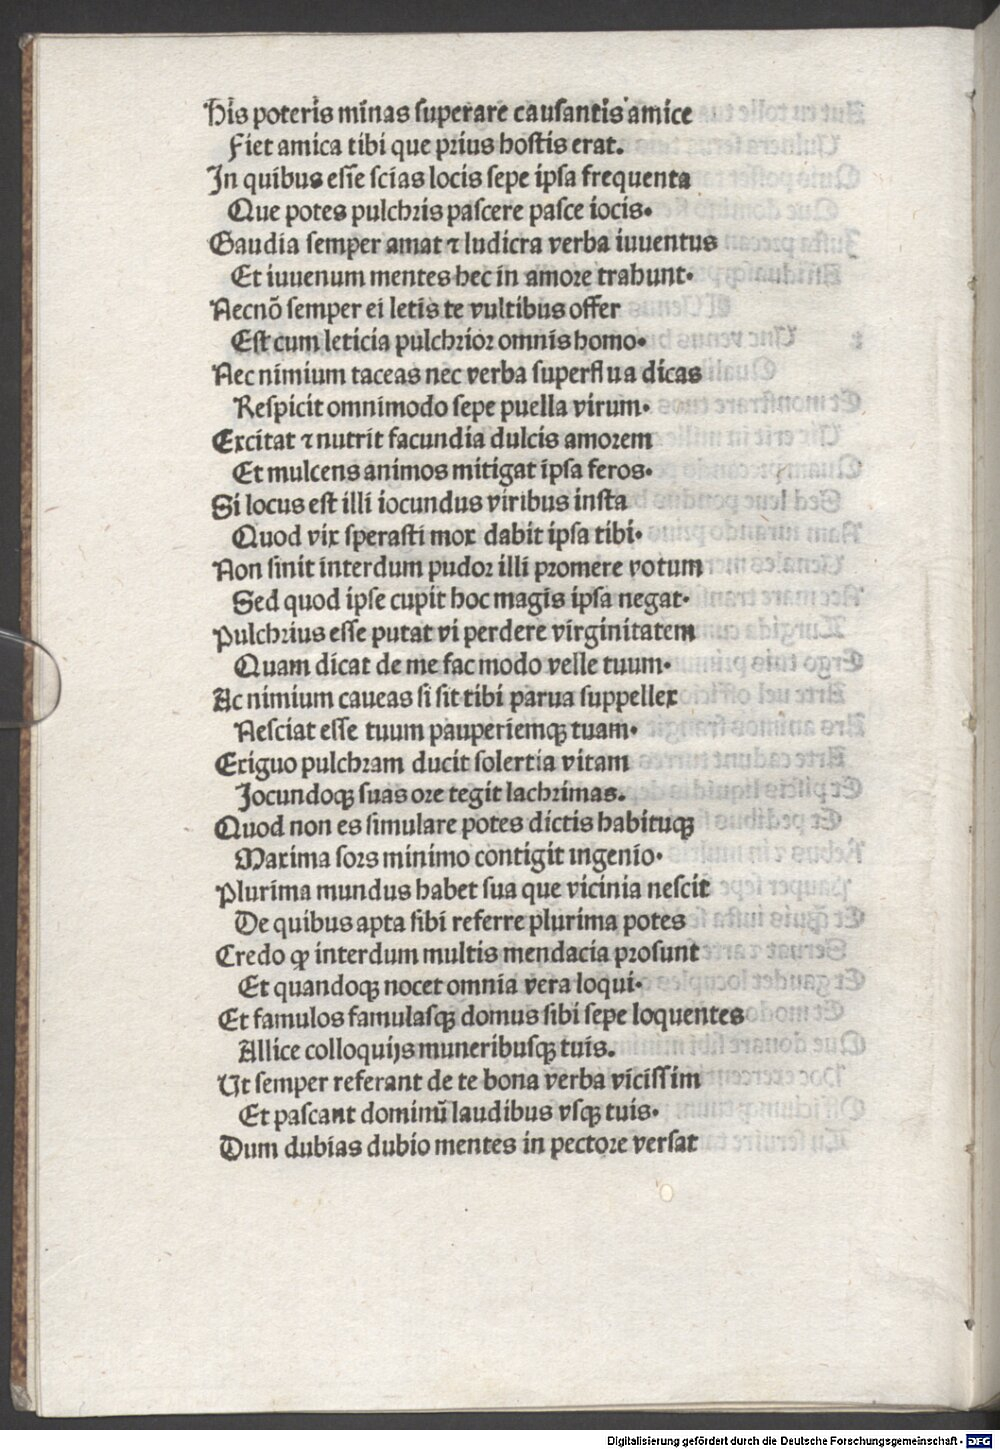 His poteris minas superare causantis amice
Fiet amica tibi que prius hostis erat.
In quibus esse scias locis sepe ipsa frequenta
Que potes pulchris pascere pasce iocis.
Gaudia semper amat ⁊ ludicra verba iuuentus
Et iuuenum mentes hec in amore trahunt.
Necnō semper ei letis te vultibus offer
Est cum leticia pulchrior omnis homo.
Nec nimium taceas nec verba superflua dicas
Respicit omnimodo sepe puella virum.
Excitat ⁊ nutrit facundia dulcis amorem
Et mulcens animos mitigat ipsa feros.
Si locus est illi iocundus viribus insta
Quod vix sperasti mox dabit ipsa tibi.
Non sinit interdum pudor illi promere votum
Sed quod ipse cupit hoc magis ipsa negat.
Pulchrius esse putat vi perdere virginitatem
Quam dicat de me fac modo velle tuum.
Ac nimium caueas si sit tibi parua suppellex
Nesciat esse tuum pauperiemqꝫ tuam.
Exiguo pulchram ducit solertia vitam
Jocundoqꝫ suas ore tegit lachrimas.
Quod non es simulare potes dictis habituqꝫ
Maxima sors minimo contigit ingenio.
Plurima mundus habet sua que vicinia nescit
De quibus apta sibi referre plurima potes
Credo ꝙ interdum multis mendacia prosunt
Et quandoqꝫ nocet omnia vera loqui.
Et famulos famulasqꝫ domus sibi sepe loquentes
Allice colloquijs muneribusqꝫ tuis.
Ut semper referant de te bona verba vicissim
Et pascant dominū laudibus vsqꝫ tuis.
Dum dubias dubio mentes in pectore versat
Digitalisierung gefördert durch die Deutsche Forschungsgemeinschaft - DFG